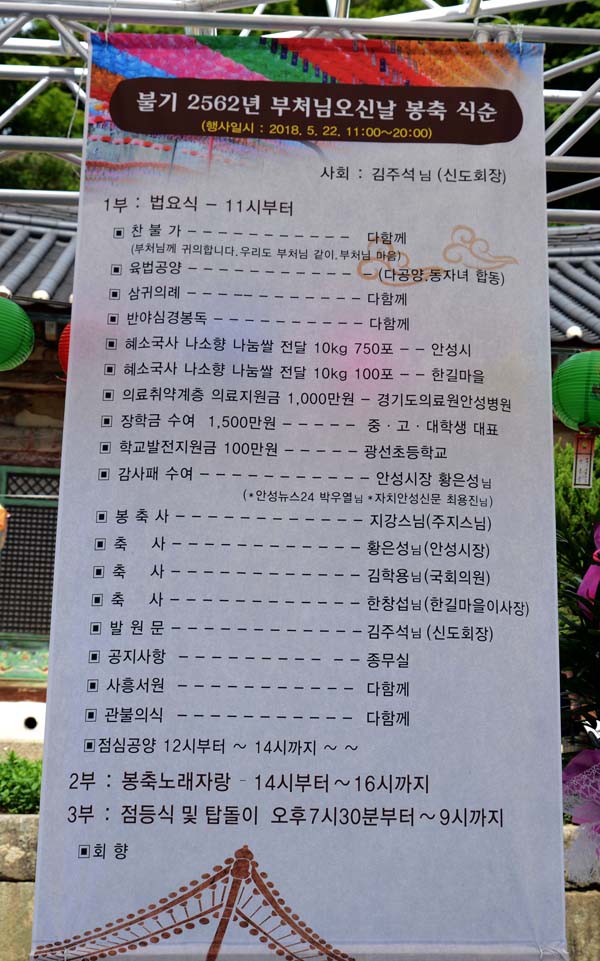 불기 2562년 부처님오신날 봉축 식순
(행사일시 : 2018. 5. 22. 11:00~20:00)
사회 : 김주석님 (신도회장)
1부 : 법요식 - 11시부터
▣ 찬 불 가 ----------- 다함께
(부처님께 귀의합니다. 우리도 부처님 같이. 부처님 마음)
▣ 육법공양 ----------- (다공양.동자녀 합동)
▣ 삼귀의례 ----------- 다함께
▣ 반야심경봉독 ---------- 다함께
▣ 혜소국사 나소향 나눔쌀 전달 10kg 750포 -- 안성시
▣ 혜소국사 나소향 나눔쌀 전달 10kg 100포 -- 한길마을
▣ 의료취약계층 의료지원금 1,000만원 - 경기도의료원안성병원
▣ 장학금 수여 1,500만원 ----- 중 · 고 · 대학생 대표
▣ 학교발전지원금 100만원 ----- 광선초등학교
▣ 감사패 수여 ----------- 안성시장 황은성님
(*안성뉴스24 박우열님 *자치안성신문 최용진님)
▣ 봉 축 사 ------------ 지강스님(주지스님)
▣ 축 사 ------------ 황은성님(안성시장)
▣ 축 사 ------------ 김학용님(국회의원)
▣ 축 사 ------------ 한창섭님(한길마을이사장)
▣ 발 원 문 ------------ 김주석님(신도회장)
▣ 공지사항 ----------- 종무실
▣ 사홍서원 ----------- 다함께
▣ 관불의식 ----------- 다함께
▣점심공양 12시부터 ~ 14시까지 ~ ~
2부 : 봉축노래자랑 - 14시부터~16시까지
3부 : 점등식 및 탑돌이 오후7시30분부터~9시까지
▣회 향